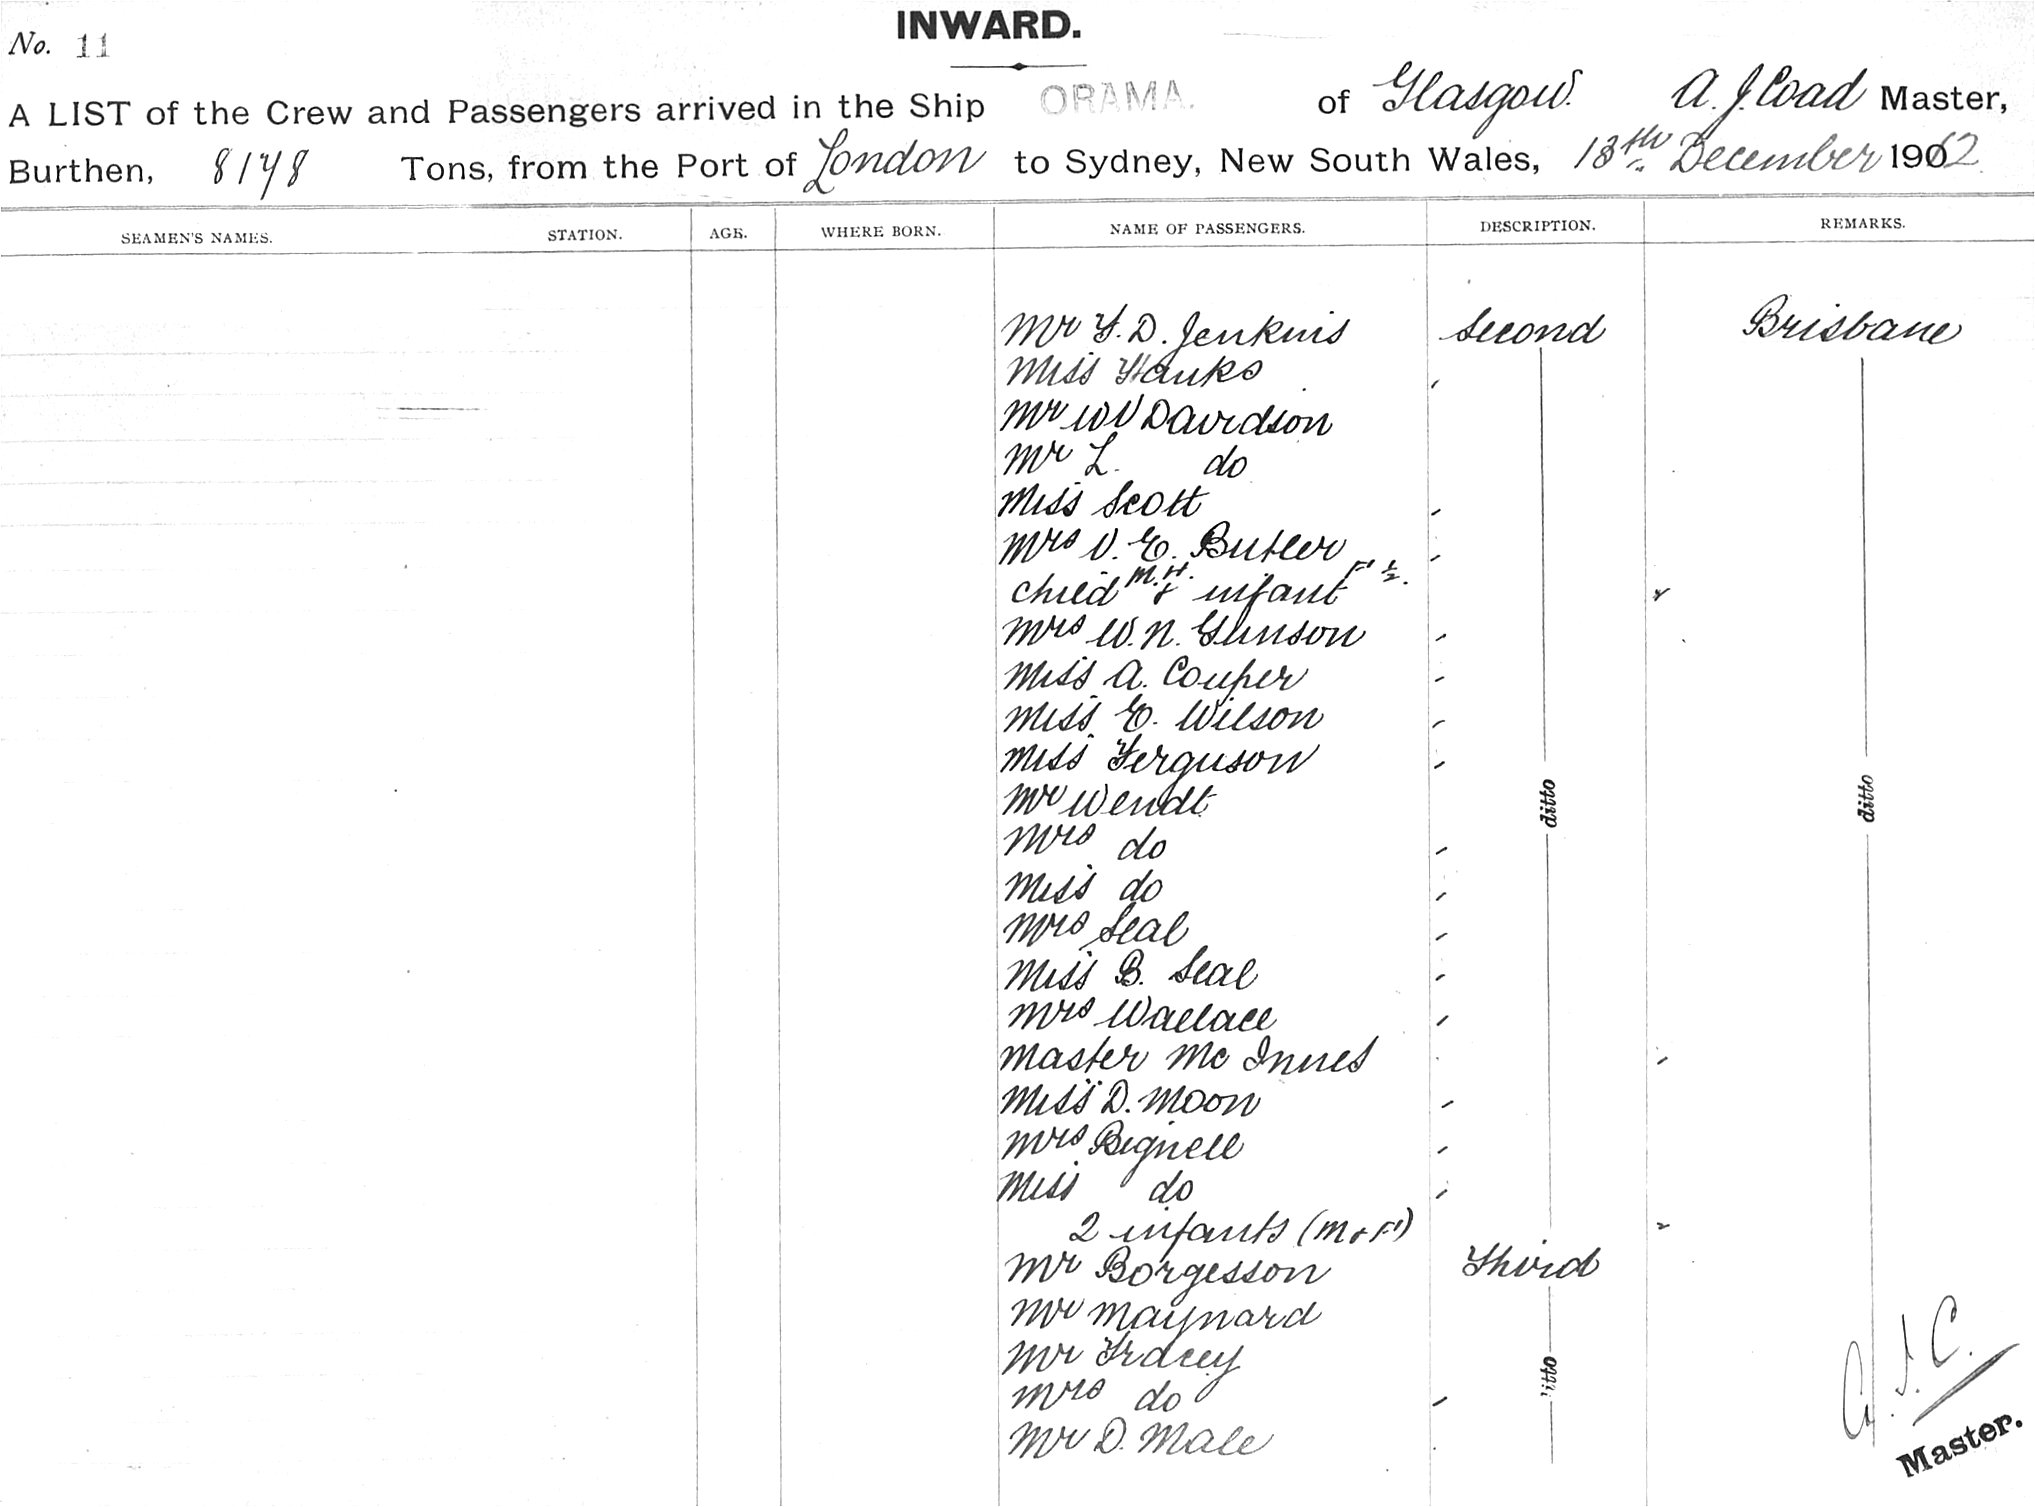 INWARD.
No. 11
A LIST of the Crew and Passengers arrived in the Ship ORAMA. of Glasgow. A. J. Coad Master,
Burthen, 8178 Tons, from the Port of London to Sydney, New South Wales, 13th December 1912
SEAMEN'S NAMES. STATION. AGE. WHERE BORN. NAME OF PASSENGERS. DESCRIPTION. REMARKS.
Mr F. D. Jenkins Second Brisbane
Miss Hanks
Mr W V Davidson
Mr L. do
Miss Scott
Mrs V. E. Butler
child M.H. & infant F ½.
Mrs W. N. Gunson
Miss A. Couper
Miss E. Wilson
Miss Ferguson
Mr Wendt ditto ditto
Mrs do
Miss do
Mrs Seal
Miss B. Seal
Mrs Wallace
Master Mc Innes
Miss D. Moon
Mrs Bignell
Miss do
2 infants (M & F)
Mr Borgesson Third
Mr Maynard
Mr Tracey ditto
Mrs do
Mr D. Male
A. J. C.
Master.